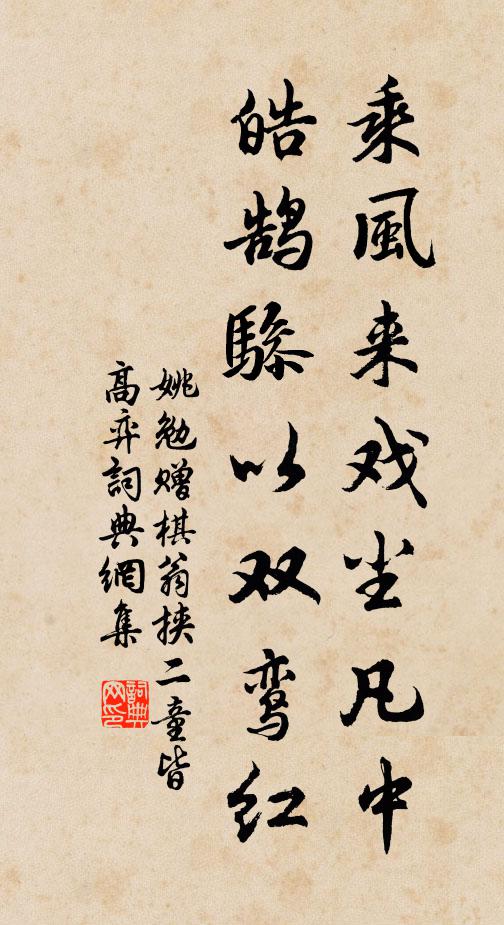 乘風来戏尘凡中
皓鹄骖以双鸾红
姚勉赠棋翁挟二童皆
高弈詞典網集
詞典
网印